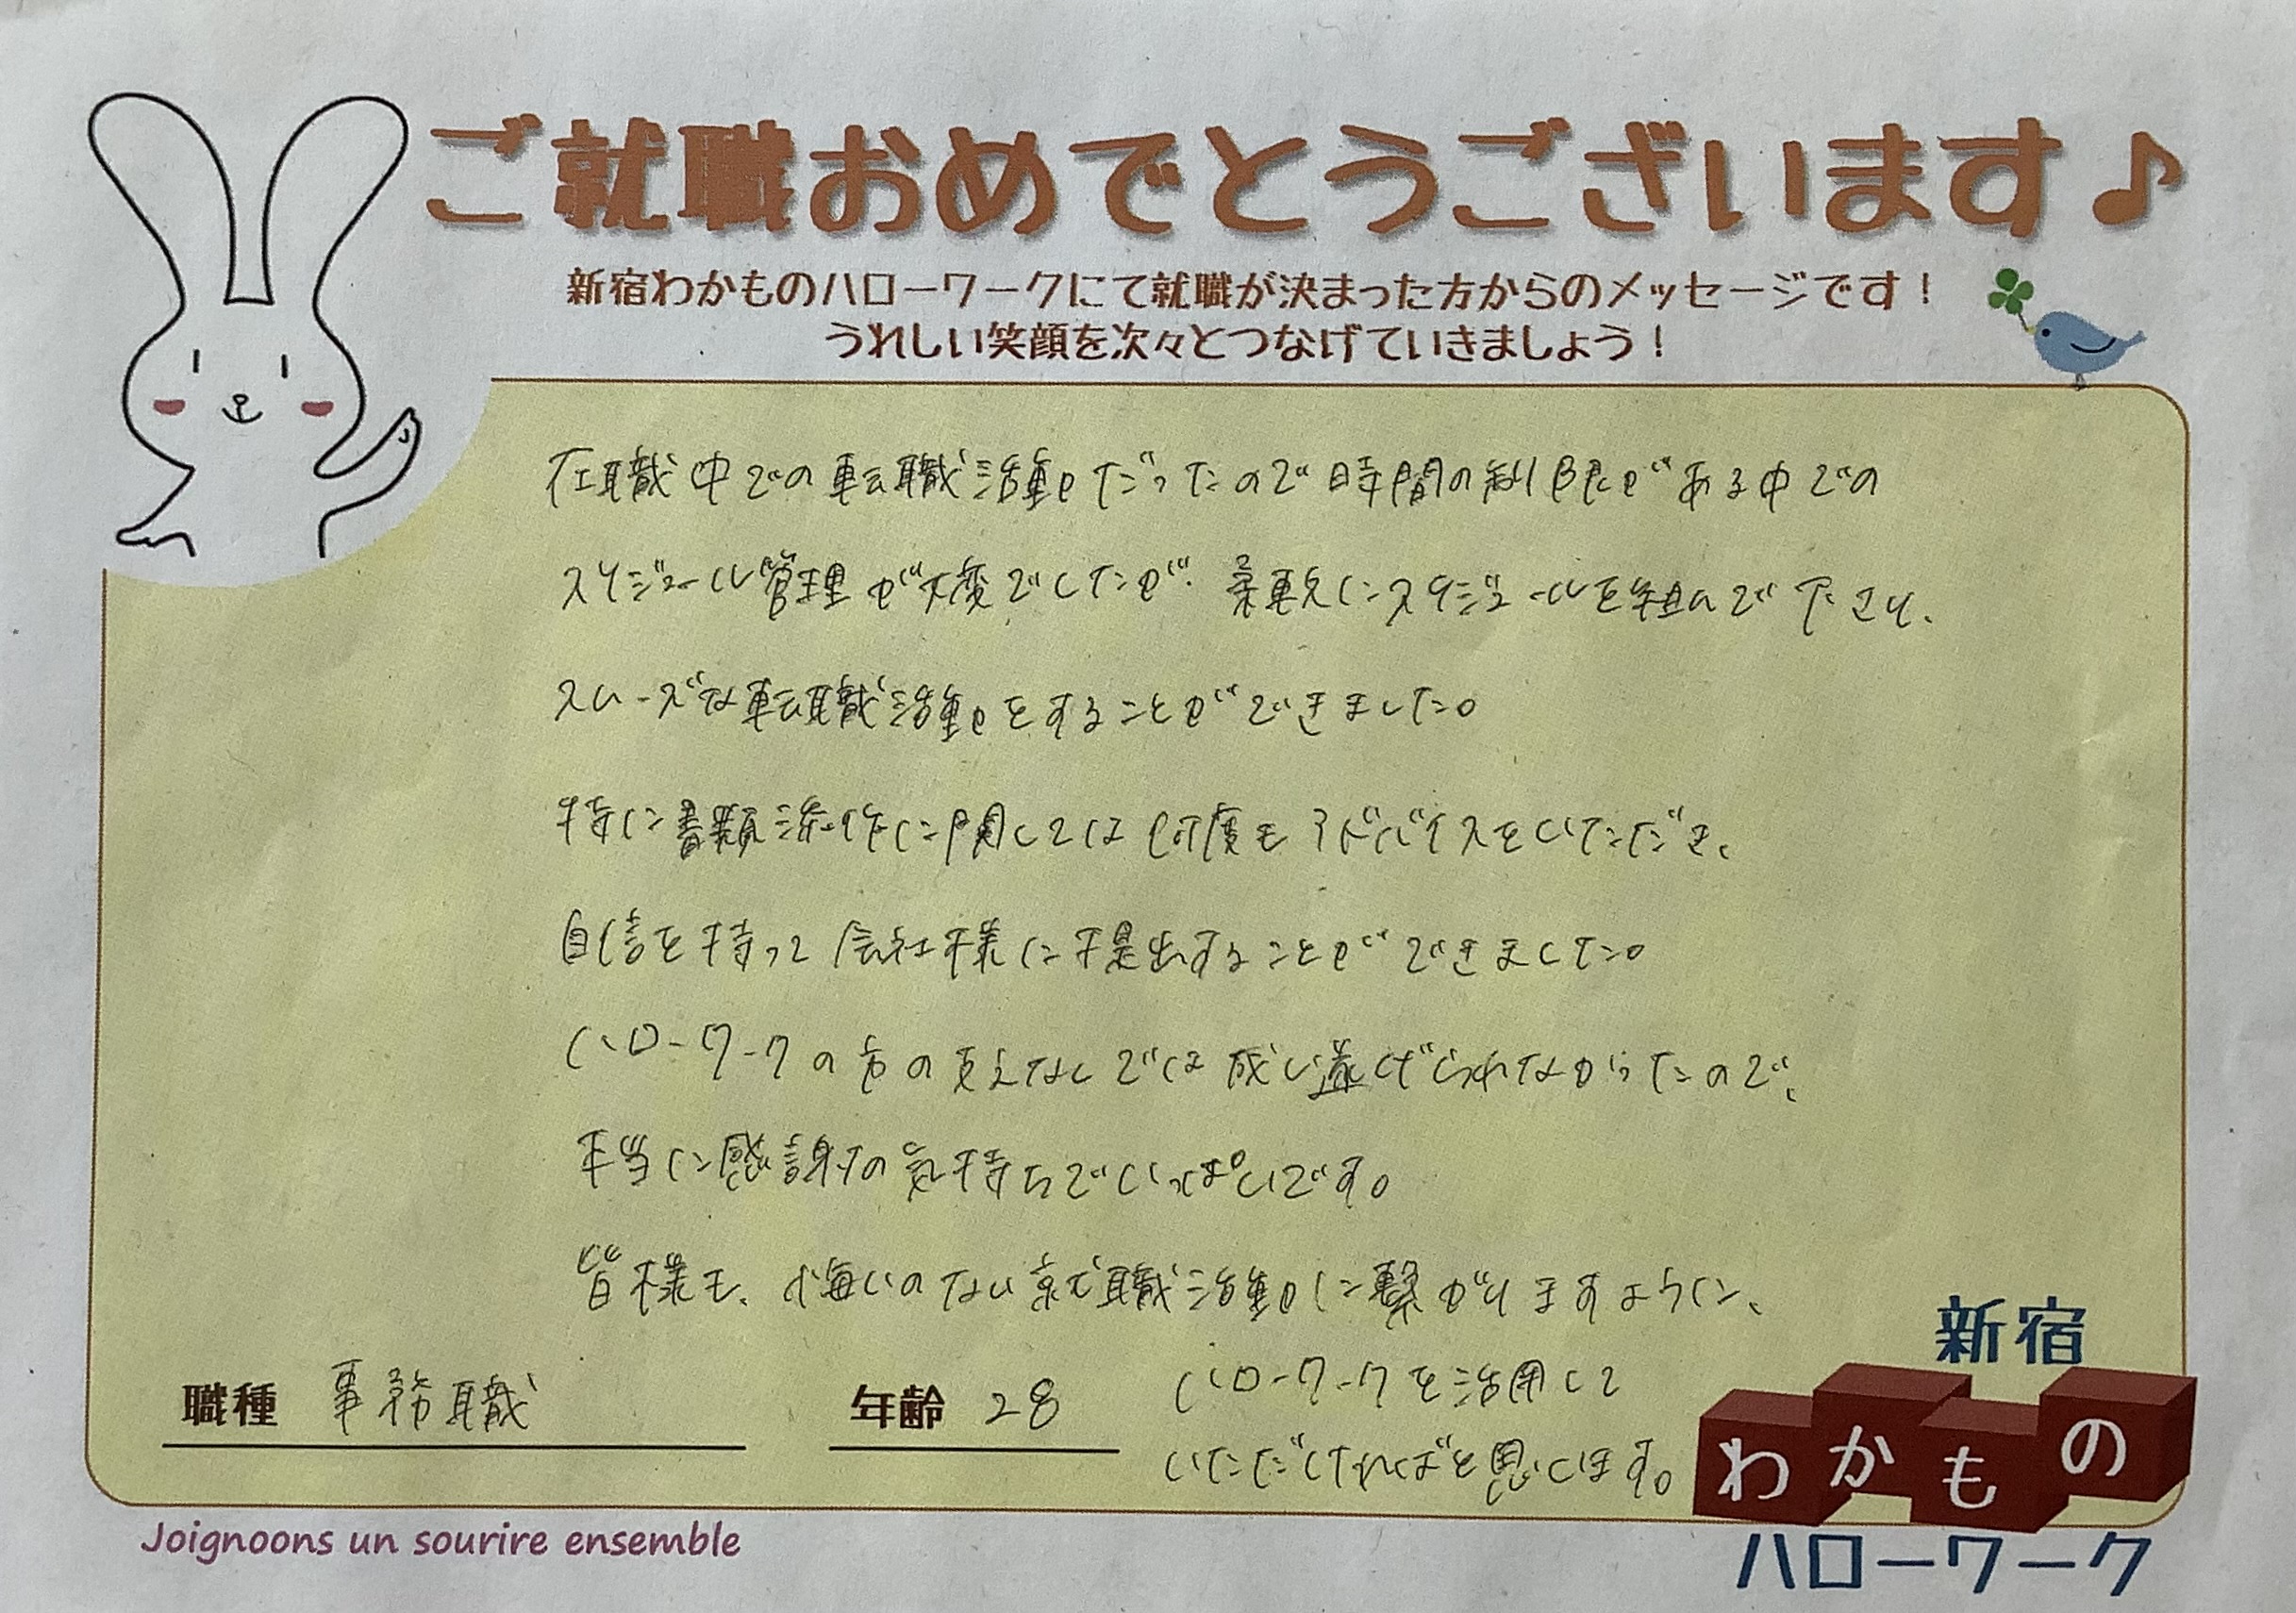 ご就職おめでとうございます♪
新宿わかものハローワークにて就職が決まった方からのメッセージです！
うれしい笑顔を次々とつなげていきましょう！
在職中での転職活動だったので時間の制限がある中での
スケジュール管理が大変でしたが、柔軟にスケジュールを組んで下さり、
スムーズな転職活動をすることができました。
特に書類添作に関しては何度もアドバイスをいただき、
自信を持って会社様に提出することができました。
ハローワークの方の支えなしでは成し遂げられなかったので、
本当に感謝の気持ちでいっぱいです。
皆様も、悔いのない就職活動に繋がりますように、
ハローワークを活用して
いただければと思います。
職種 事務職
年齢 28
新宿
わかもの
ハローワーク
Joignoons un sourire ensemble